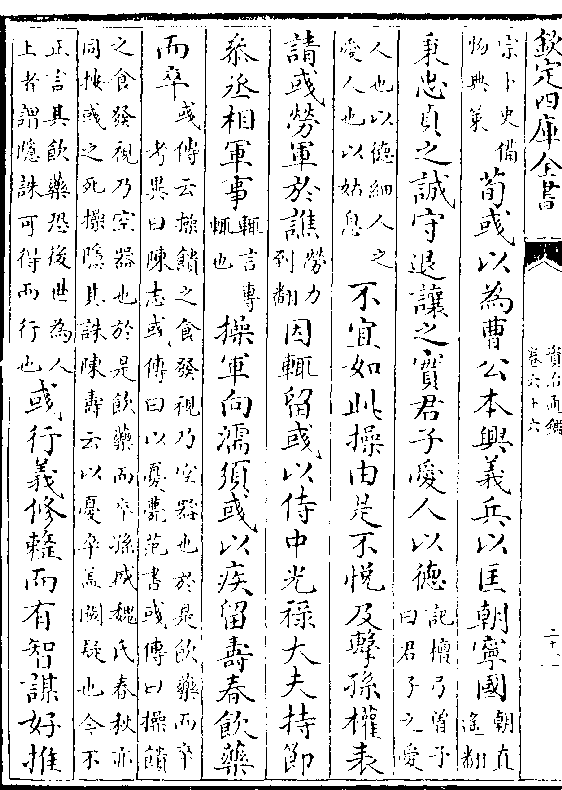 欽定四庫全書
資治通鑑
卷六十六
宗卜史備
物典策
荀彧以為曹公本興義兵以匡朝寧國
朝直
遙翻
秉忠貞之誠守退讓之實君子愛人以德
記檀弓曾子
曰君子之愛
人也以德細人之
愛人也以姑息
不宜如此操由是不悅及擊孫權表
請彧勞軍於譙
勞力
到翻
因輒留彧以侍中光祿大夫持節
參丞相軍事
輒言專
輒也
操軍向濡須彧以疾留壽春飲藥
而卒
彧傳云操饋之食發視乃空器也於是飲藥而卒
考異曰陳志彧傳曰以憂薨范書彧傳曰操饋
之食發視乃空器也於是飲藥而卒孫盛魏氏春秋亦
同按彧之死操隱其誅陳壽云以憂卒蓋闕疑也今不
正言其飲藥恐後世為人
上者謂隱誅可得而行也
彧行義修整而有智謀好推